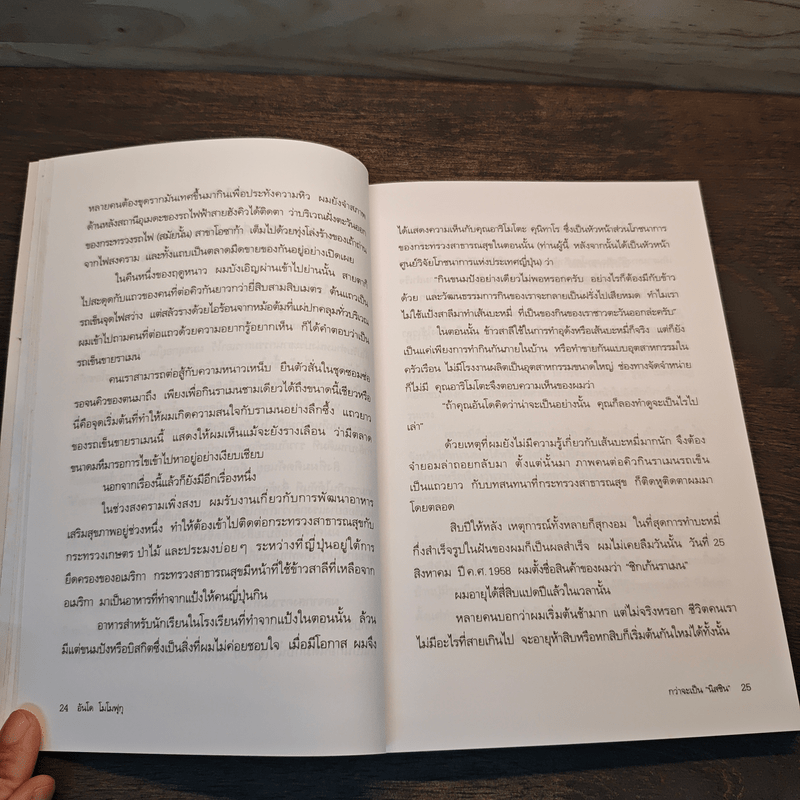 หลายคนต้องขุดรากมันเทศขึ้นมากินเพื่อประทังความหิว ผมยังจำสภาพ
ด้านหลังสถานีอุเมดะของรถไฟฟ้าสายฮังคิวได้ติดตา ว่าบริเวณฝั่งตะวันออก
ของกระทรวงรถไฟ (สมัยนั้น) สาขาโอซาก้า เต็มไปด้วยทุ่งโล่งร้างของเถ้าถ่าน
จากไฟสงคราม และทั้งแถบเป็นตลาดมืดขายของกันอยู่อย่างเปิดเผย
ในคืนหนึ่งของฤดูหนาว ผมบังเอิญผ่านเข้าไปย่านนั้น สายตาก็
ไปสะดุดกับแถวของคนที่ต่อคิวกันยาวกว่ายี่สิบสามสิบเมตร ต้นแถวเป็น
รถเข็นจุดไฟสว่าง แต่สลัวรางด้วยไอร้อนจากหม้อต้มที่แผ่ปกคลุมทั่วบริเวณ
ผมเข้าไปถามคนที่ต่อแถวด้วยความอยากรู้อยากเห็น ก็ได้คำตอบว่าเป็น
รถเข็นขายราเมน
คนเราสามารถต่อสู้กับความหนาวเหน็บ ยืนตัวสั่นในชุดซอมซ่อ
รอจนคิวของตนมาถึง เพียงเพื่อกินราเมนชามเดียวได้ถึงขนาดนี้เชียวหรือ
นี่คือจุดเริ่มต้นที่ทำให้ผมเกิดความสนใจกับราเมนอย่างลึกซึ้ง แถวยาว
ของรถเข็นขายราเมนนี้ แสดงให้ผมเห็นแม้จะยังรางเลือน ว่ามีตลาด
ขนาดมหึมารอการไขเข้าไปหาอยู่อย่างเงียบเชียบ
นอกจากเรื่องนี้แล้วก็ยังมีอีกเรื่องหนึ่ง
ในช่วงสงครามเพิ่งสงบ ผมรับงานเกี่ยวกับการพัฒนาอาหาร
เสริมสุขภาพอยู่ช่วงหนึ่ง ทำให้ต้องเข้าไปติดต่อกระทรวงสาธารณสุขกับ
กระทรวงเกษตร ป่าไม้ และประมงบ่อยๆ ระหว่างที่ญี่ปุ่นอยู่ใต้การ
ยึดครองของอเมริกา กระทรวงสาธารณสุขมีหน้าที่ใช้ข้าวสาลีที่เหลือจาก
อเมริกา มาเป็นอาหารที่ทำจากแป้งให้คนญี่ปุ่นกิน
อาหารสำหรับนักเรียนในโรงเรียนที่ทำจากแป้งในตอนนั้น ล้วน
มีแต่ขนมปังหรือบิสกิตซึ่งเป็นสิ่งที่ผมไม่ค่อยชอบใจ เมื่อมีโอกาส ผมจึง
24 อันโด โมโมฟุกุ
ได้แสดงความเห็นกับคุณอาริโมโตะ คุนิทาโร ซึ่งเป็นหัวหน้าส่วนโภชนาการ
ของกระทรวงสาธารณสุขในตอนนั้น (ท่านผู้นี้ หลังจากนั้นได้เป็นหัวหน้า
ศูนย์วิจัยโภชนาการแห่งประเทศญี่ปุ่น) ว่า
"กินขนมปังอย่างเดียวไม่พอหรอกครับ อย่างไรก็ต้องมีกับข้าว
ด้วย และวัฒนธรรมการกินของเราจะกลายเป็นฝรั่งไปเสียหมด ทำไมเรา
ไม่ใช้แป้งสาลีมาทำเส้นบะหมี่ ที่เป็นของกินของเราชาวตะวันออกล่ะครับ"
ในตอนนั้น ข้าวสาลีใช้ในการทำอุด้งหรือเส้นบะหมี่ก็จริง แต่ก็ยัง
เป็นแค่เพียงการทำกินกันภายในบ้าน หรือทำขายกันแบบอุตสาหกรรมใน
ครัวเรือน ไม่มีโรงงานผลิตเป็นอุตสาหกรรมขนาดใหญ่ ช่องทางจัดจำหน่าย
ก็ไม่มี คุณอาริโมโตะจึงตอบความเห็นของผมว่า
"ถ้าคุณอันโดคิดว่าน่าจะเป็นอย่างนั้น คุณก็ลองทำดูจะเป็นไรไป
เล่า"
ด้วยเหตุที่ผมยังไม่มีความรู้เกี่ยวกับเส้นบะหมี่มากนัก จึงต้อง
จำยอมล่าถอยกลับมา ตั้งแต่นั้นมา ภาพคนต่อคิวกินราเมนรถเข็น
เป็นแถวยาว กับบทสนทนาที่กระทรวงสาธารณสุข ก็ติดหูติดตาผมมา
โดยตลอด
สิบปีให้หลัง เหตุการณ์ทั้งหลายก็สุกงอม ในที่สุดการทำบะหมี่
กึ่งสำเร็จรูปในฝันของผมก็เป็นผลสำเร็จ ผมไม่เคยลืมวันนั้น วันที่ 25
สิงหาคม ปี ค.ศ. 1958 ผมตั้งชื่อสินค้าของผมว่า "ชิกเก้นราเมน"
ผมอายุได้สี่สิบแปดปีแล้วในเวลานั้น
หลายคนบอกว่าผมเริ่มต้นช้ามาก แต่ไม่จริงหรอก ชีวิตคนเรา
ไม่มีอะไรที่สายเกินไป จะอายุห้าสิบหรือหกสิบก็เริ่มต้นกันใหม่ได้ทั้งนั้น
กว่าจะเป็น "นิสชิน" 25